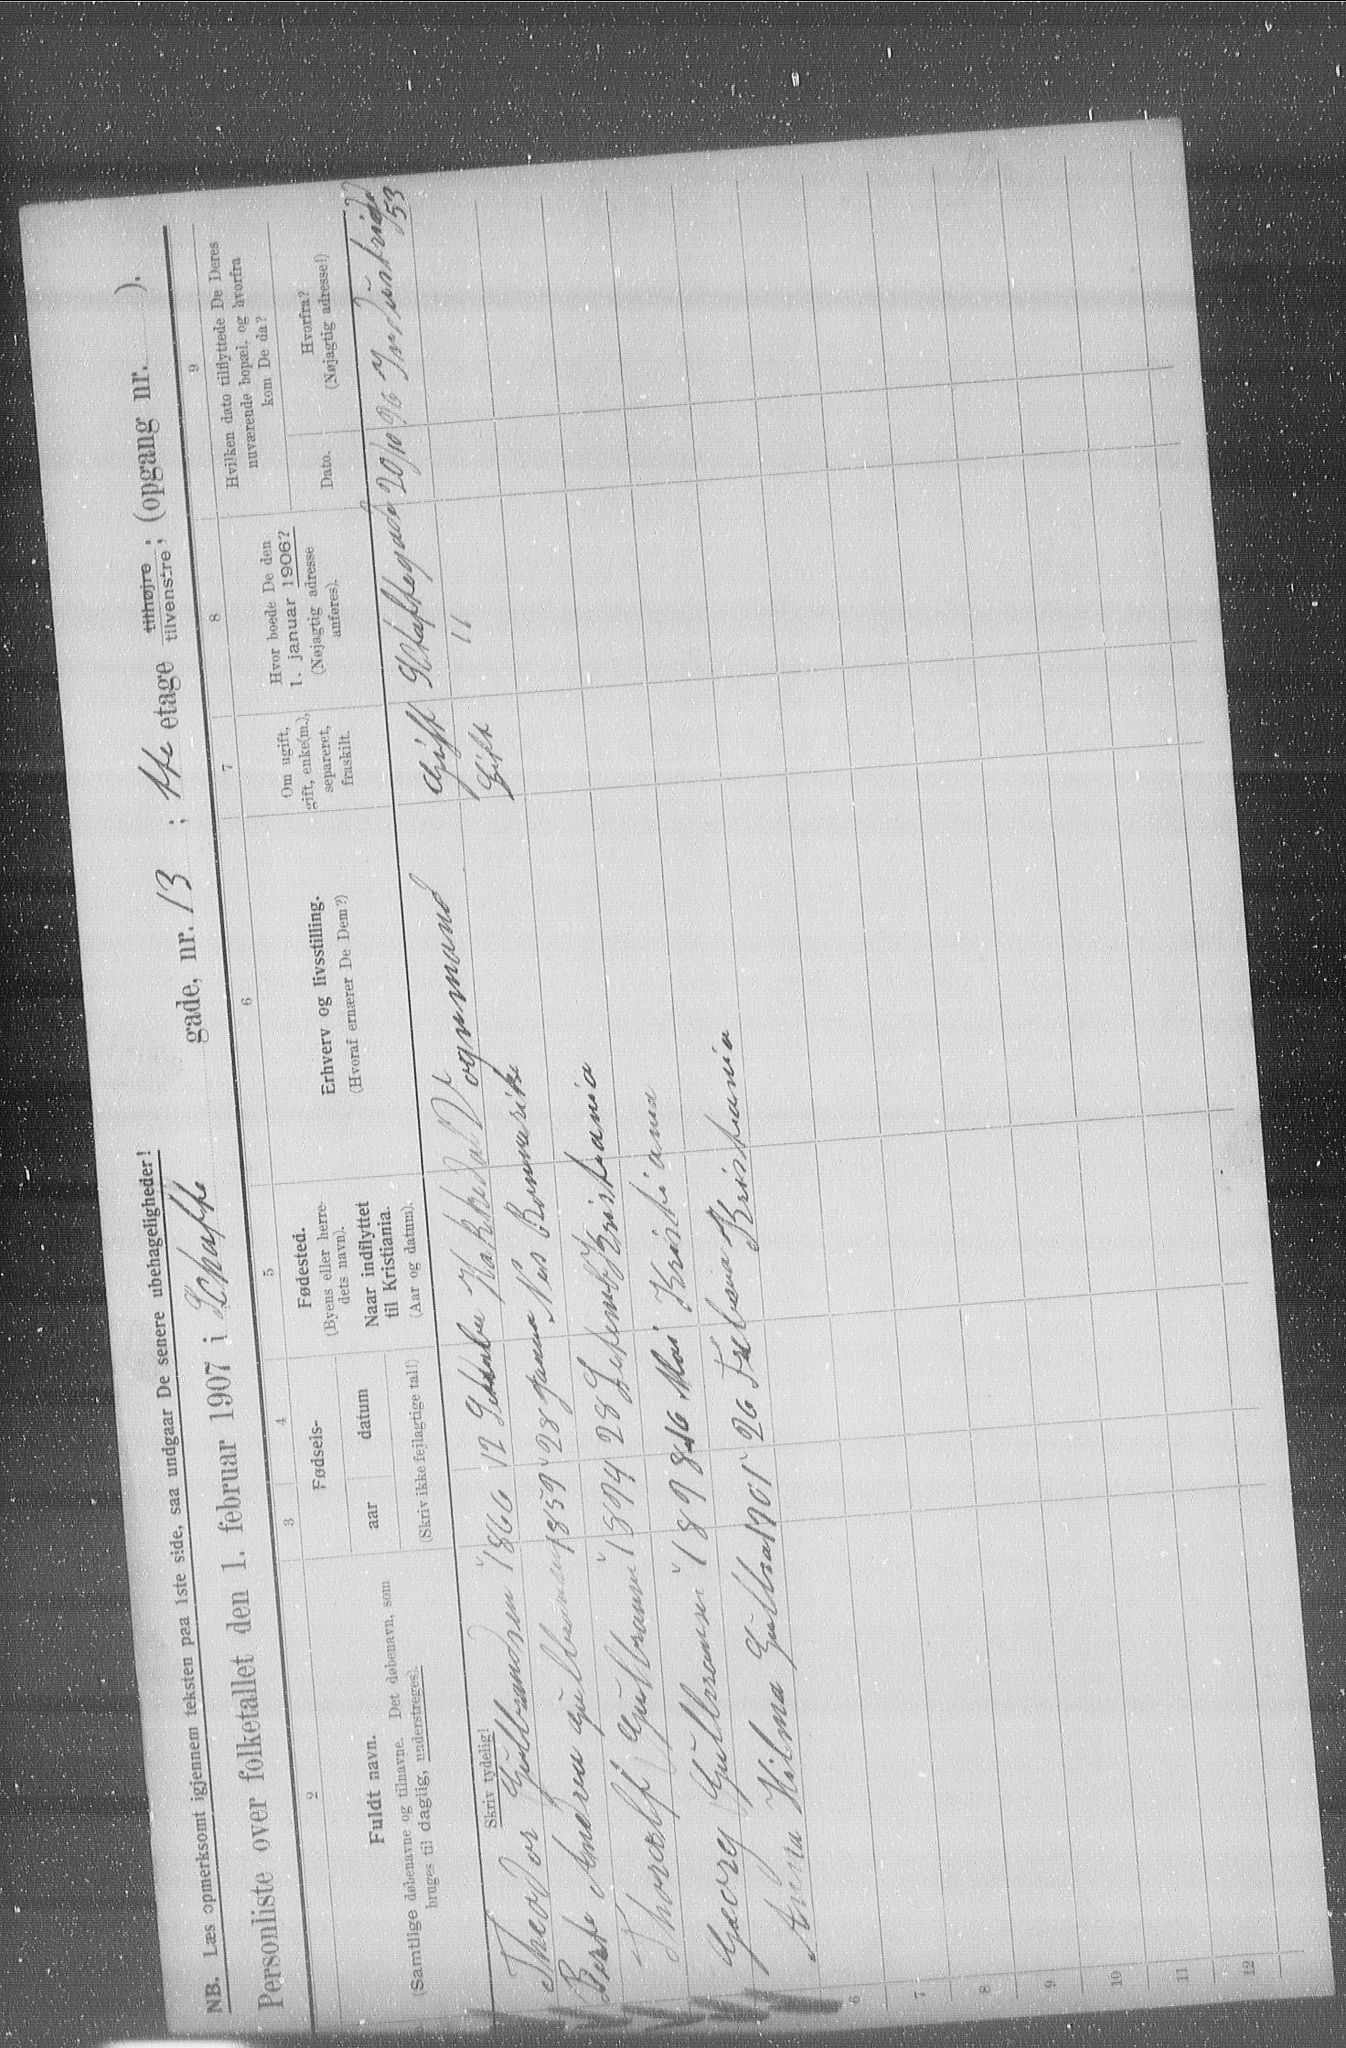 NB. Læs opmerksomt igjennem teksten paa 1ste side, saa undgaar De senere ubehageligheder!
Personliste over folketallet den 1. februar 1907 i Schaffe gade, nr. 13 ; 1ste etage tilhøjre ; tilvenstre ; (opgang nr. ).
2 3 4 5 6 7 8 9
Fuldt navn.
(Samtlige døbenavne og tilnavne. Det døbenavn, som
bruges til daglig, understreges).
Skriv tydelig!
Fødsels-
aar datum
(Skriv ikke fejlagtige tal!)
Fødested.
(Byens eller herre-
dets navn).
Naar indflyttet
til Kristiania.
(Aar og datum).
Erhverv og livsstilling.
(Hvoraf ernærer De Dem?)
Om ugift,
gift, enke(m.),
separeret,
fraskilt.
Hvor boede De den
1. januar 1906?
(Nøjagtig adresse
anføres).
Hvilken dato tilflyttede De Deres
nuværende bopæl, og hvorfra
kom De da?
Dato.
Hvorfra?
(Nøjagtig adresse!)
Theodor Gulbrandsen 1866 12 Hakkedal Vognmand Gift Schaffegade 20/10 96 Industrigd 53
Berte Andrea 1859 28 Janua Nes Romerike Gift 11
Thoralf Gulbransen 1894 28 Septemb Kristiania
Georg Gulbransen 1898 16 Mai Kristiania
Anna Hilma Gulbra 1901 26 Februa Kristiania
6
7
8
9
10
11
12